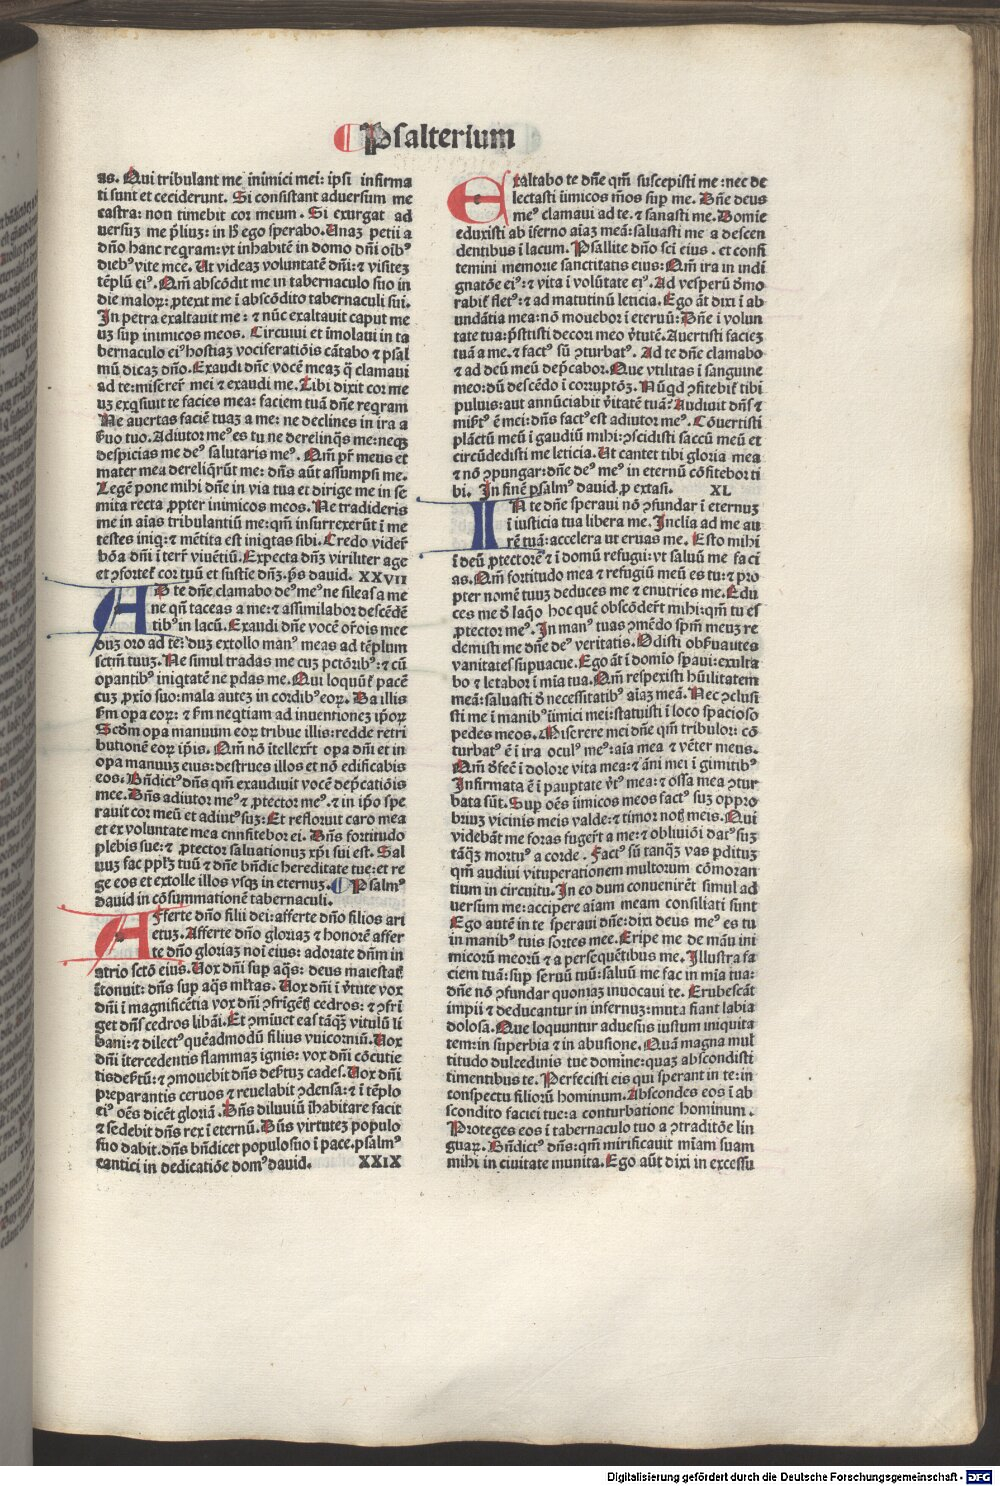 Psalterium
as. Qui tribulant me inimici mei: ipsi infirma
ti sunt et ceciderunt. Si consistant aduersum me
castra: non timebit cor meum. Si exurgat ad
versuȝ me p̄liuȝ: in hͦ ego sperabo. Unaȝ petii a
dño hanc reqram: vt inhabitē in domo dñi oībꝰ
diebꝰ vite mee. Ut videaȝ voluntatē dñi: ⁊ visiteȝ
tēplū eiꝰ. Qm̄ abscōdit me in tabernaculo suo in
die maloꝝ: ꝓtexit me ī abscōdito tabernaculi sui.
In petra exaltauit me: ⁊ nūc exaltauit caput me
uȝ sup inimicos meos. Circuiui et īmolaui in ta
bernaculo eiꝰ hostiaȝ vociferatiōis cātabo ⁊ psal
mū dicaȝ dño. Exaudi dñe vocē meaȝ q̄ clamaui
ad te: miserer̄ mei ⁊ exaudi me. Tibi dixit cor me
uȝ exqsiuit te facies mea: faciem tuā dñe reqram
Ne auertas faciē tuaȝ a me: ne declines in ira a
ẜuo tuo. Adiutor meꝰ es tu ne derelinq̄s me: neqȝ
despicias me deꝰ salutaris meꝰ. Qm̄ pr̄ meus et
mater mea dereliq̄rūt me: dñs aūt assumpsi me.
Legē pone mihi dñe in via tua et dirige me in se
mita recta ꝓpter inimicos meos. Ne tradideris
me in aīas tribulantiū me: qm̄ insurrexerūt ī me
testes iniq: ⁊ mētita est iniqtas sibi. Credo vider̄
bōa dñi ī terr̄ viuētiū. Expecta dñȝ viriliter age
et ꝯfortet̄ cor tuū et sustie dñȝ. p̄s dauid. XXVII
AD te dñe clamabo deꝰ meꝰ ne sileas a me
ne qn̄ taceas a me: ⁊ assimilabor descēdē
tibꝰ in lacū. Exaudi dñe vocē or̄ois mee
duȝ oro ad te: duȝ extollo manꝰ meas ad tēplum
sctm̄ tuuȝ. Ne simul tradas me cuȝ pctōribꝰ: ⁊ cū
opantibꝰ iniqtatē ne pdas me. Qui loquūt̄ pacē
cuȝ ꝓxīo suo: mala auteȝ in cordibꝰ eoꝝ. Da illis
ẜm opa eoꝝ: ⁊ ẜm neqtiam ad inuentioneȝ ip̄oꝝ
Scd̄m opa manuum eoꝝ tribue illis: redde retri
butionē eoꝝ ip̄is. Qm̄ nō ītellexer̄t opa dñi et in
opa manuuȝ eius: destrues illos et nō edificabis
eos. Bn̄dictꝰ dñs qm̄ exaudiuit vocē dep̄catiōis
mee. Dñs adiutor meꝰ ⁊ ꝓtector meꝰ. ⁊ in ip̄o spe
rauit cor meū et adiutꝰ suȝ: Et refloruit caro mea
et ex voluntate mea cnnfitebor ei. Dñs fortitudo
plebis sue: ⁊ ꝓtector saluationuȝ xp̄i sui est. Sal
uuȝ fac pplȝ tuū ⁊ dñe bn̄dic hereditate tue: et re
ge eos et extolle illos vsqȝ in eternuȝ. Psalmꝰ
dauid in cōsummationē tabernaculi.
AFferte dño filii dei: afferte dño filios ari
etuȝ. Afferte dño gloriaȝ ⁊ honorē affer
te dño gloriaȝ noī eius: adorate dñm in
atrio sctō eius. Uox dñi sup aq̄s: deus maiestat̄
ītonuit: dñs sup aq̄s ml̄tas. Uox dñi ī v̄tute vox
dñi ī magnificētia vox dñi ꝯfrīgēt̄ cedros: ⁊ ꝯfrī
get dñs cedros libāi. Et ꝯmīuet eas tāqȝ vitulū li
bani: ⁊ dilectꝰ quēadmodū filius vnicorniū. Uox
dñi ītercedentis flammaȝ ignis: vox dñi cōcutie
tis deẜtū: ⁊ ꝯmouebit dñs deẜtuȝ cades. Uox dñi
preparantis ceruos ⁊ reuelabit ꝯdensa: ⁊ ī tēplo
eiꝰ oēs dicēt gloriā. Dñs diluuiū īhabitare facit
⁊ sedebit dñs rex ī eternū. Dñs virtuteȝ populo
suo dabit. dñs bn̄dicet populo suo ī pace. psalmꝰ
cantici in dedicatiōe domꝰ dauid. XXIX
Exaltabo te dñe qm̄ suscepisti me: nec de
lectasti īimicos m̄os sup me. Dñe deus
meꝰ clamaui ad te. ⁊ sanasti me. Domie
eduxisti ab īferno aīaȝ meā: saluasti me a descen
dentibus ī lacum. Psallite dño sci eius. et confi
temini memorie sanctitatis eius: Qm̄ ira in indi
gnatōe eiꝰ: ⁊ vita ī volūtate eiꝰ. Ad vesperū d̄mo
rabit̄ fletꝰ: ⁊ ad matutinū leticia. Ego āt dixi ī ab
undātia mea: nō mouebor ī eternū: Dñe ī volun
tate tua: p̄stitisti decori meo v̄tutē. Auertisti facieȝ
tuā a me. ⁊ factꝰ sū ꝯturbatꝰ. Ad te dñe clamabo
⁊ ad deū meū dep̄cabor. Que vtilitas ī sanguine
meo: dū descēdo ī corruptōȝ. Nūqd ꝯfitebit̄ tibi
puluis: aut annūciabit v̄itatē tuā? Audiuit dñs ⁊
miẜtꝰ ē mei: dñs factꝰ est adiutor meꝰ. Cōuertisti
plāctū meū ī gaudiū mihi: ꝯscidisti saccū meū et
circūdedisti me leticia. Ut cantet tibi gloria mea
⁊ nō ꝯpungar: dñe deꝰ meꝰ in eternū cōfitebor ti
bi. In finē psalmꝰ dauid ꝓ extasi. XL
IN te dñe speraui nō ꝯfundar ī eternuȝ
ī iusticia tua libera me. Inclia ad me au
rē tuā: accelera ut eruas me. Esto mihi
ī deū ꝓtectorē ⁊ ī domū refugii: vt saluū me faci
as. Qm̄ fortitudo mea ⁊ refugiū meū es tu: ⁊ pro
pter nomē tuuȝ deduces me ⁊ enutries me. Edu
ces me d̄ laq̄o hoc quē obscōder̄t mihi: qm̄ tu es
ꝓtector meꝰ. In manꝰ tuas ꝯmēdo spm̄ meuȝ re
demisti me dñe deꝰ veritatis. Odisti obẜuātes
vanitates supuacue. Ego āt ī domīo sp̄aui: exulta
bo ⁊ letabor ī mīa tua. Qm̄ respexisti hūilitatem
meā: saluasti d̄ necessitatibꝰ aīaȝ meā. Nec ꝯclusi
sti me ī manibꝰ īimici mei: statuisti ī loco spacioso
pedes meos. Miserere mei dñe qm̄ tribulor: cō
turbatꝰ ē ī ira oculꝰ meꝰ: aīa mea ⁊ vēter meus.
Qm̄ d̄fec̄ ī dolore vita mea: ⁊ āni mei ī gimitibꝰ
Infirmata ē ī paupтate v̄tꝰ mea: ⁊ ossa mea ꝯtur
bata sūt. Sup oēs īimicos meos factꝰ suȝ oppro
briuȝ vicinis meis valde: ⁊ timor not̄ meis. Qui
videbāt me foras fuger̄t a me: ⁊ obliuiōi datꝰ suȝ
tāqȝ mortuꝰ a corde. Factꝰ sū tanqȝ vas pdituȝ
qm̄ audiui vituperationem multorum cōmoran
tium in circuitu. In eo dum conuenirēt simul ad
versum me: accipere aīam meam consiliati sunt
Ego autē in te speraui dñe: dixi deus meꝰ es tu
in manibꝰ tuis sortes mee. Eripe me de māu ini
micorū meorū ⁊ a persequētibus me. Illustra fa
ciem tuā: sup seruū tuū: saluū me fac in mīa tua:
dñe nō ꝯfundar quoniaȝ inuocaui te. Erubescāt
impii ⁊ deducantur in infernuȝ: muta fiant labia
dolosa. Que loquuntur aduersus iustum iniquita
tem: in superbia ⁊ in abusione. Quā magna mul
titudo dulcedinis tue domine: quaȝ abscondisti
timentibus te. Perfecisti eis qui sperant in te: in
conspectu filiorū hominum. Abscondes eos ī ab
scondito faciei tue: a conturbatione hominum.
Proteges eos ī tabernaculo tuo a ꝯtraditōe lin
guaꝝ. Bn̄dictꝰ dñs: qm̄ mirificauit mīam suam
mihi in ciuitate munita. Ego aūt dixi in excessu
Digitalisierung gefördert durch die Deutsche Forschungsgemeinschaft - DFG